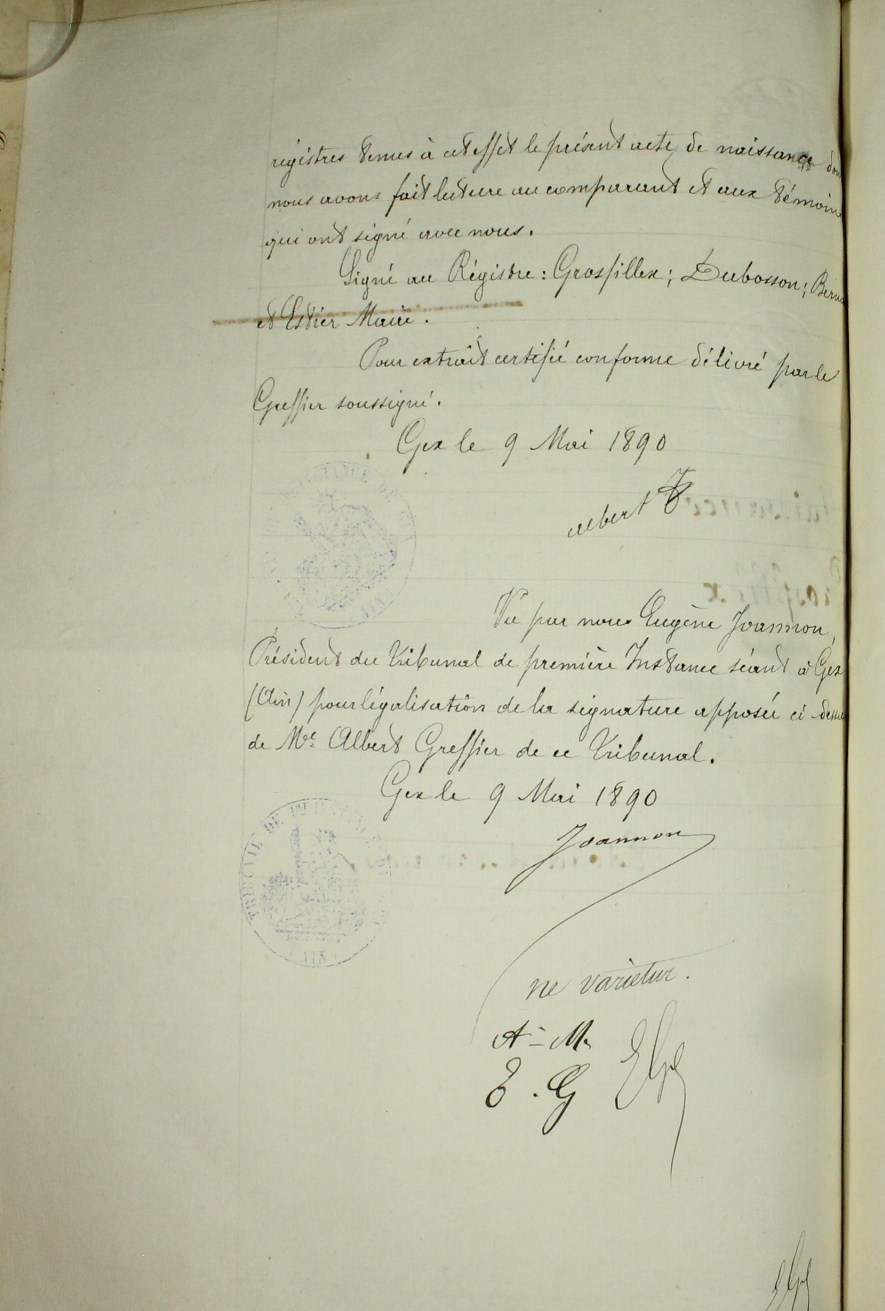 régistres tenus à cet effet le présent acte de naissance don
nous avons fait lecture au comparant et aux témoins
qui ont signé avec nous.
Signé au Régistre : Grosfillex ; Dubosson ;
et Estier Maire.
Pour extrait certifié conforme délivré par le
Greffier soussigné.
Gex le 9 Mai 1890
Albert
Vu par nous Eugène Joannon,
Président du Tribunal de première Instance séant à Gex
(Ain) pour légalisation de la signature apposée ci-dessus
de Me Albert Greffier de ce Tribunal.
Gex le 9 Mai 1890
Joannon
TRIBUNAL DE 1re
ne varietur.
A - M
E . G